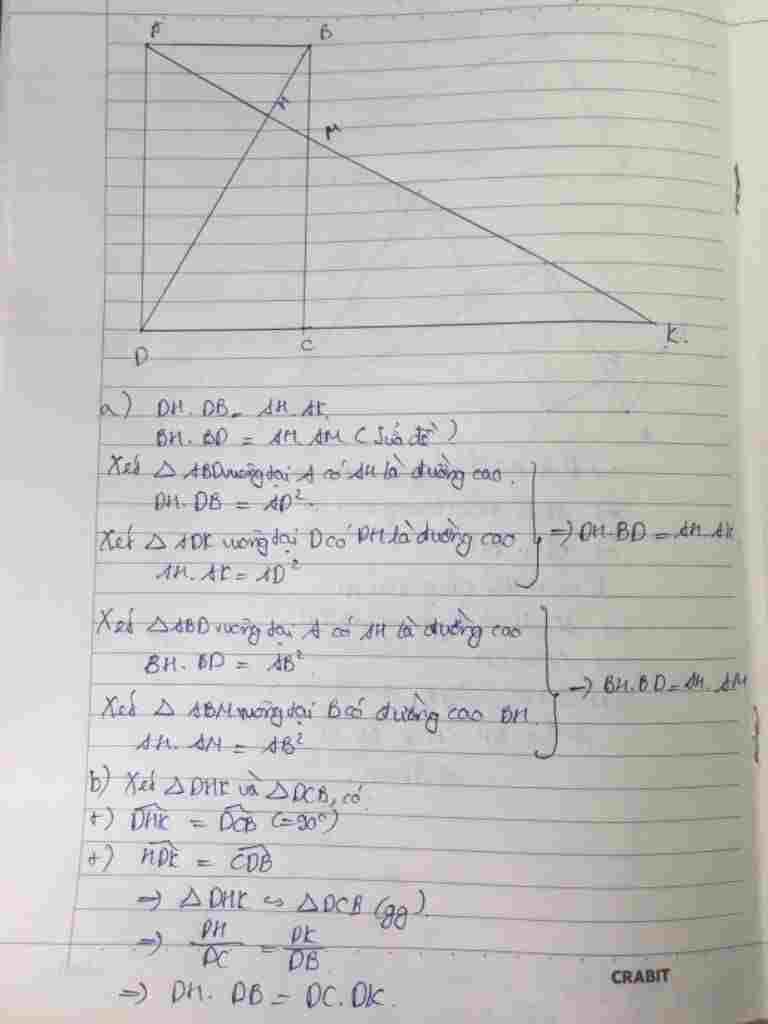 A B
H
M
D C K.
a) DH.DB = AH.AK
BH.BD = AH.AM (sửa đề)
Xét △ ABD vuông tại A có AH là đường cao.
DH.DB = AD².
Xét △ ADK vuông tại D có DH là đường cao
AH.AK = AD²
=> DH.BD = AH.AK
Xét △ABD vuông tại A có AH là đường cao
BH.BD = AB²
Xét △ ABM vuông tại B có đường cao BH.
AH.AM = AB²
=> BH.BD = AH.AM
b) Xét △DHK và △DCB, có
+) DHK = DCB (=90°)
+) HDK = CDB
=> △DHK ∽ △DCB (gg).
=> DH/DC = DK/DB
=> DH.DB = DC.DK.
CRABIT